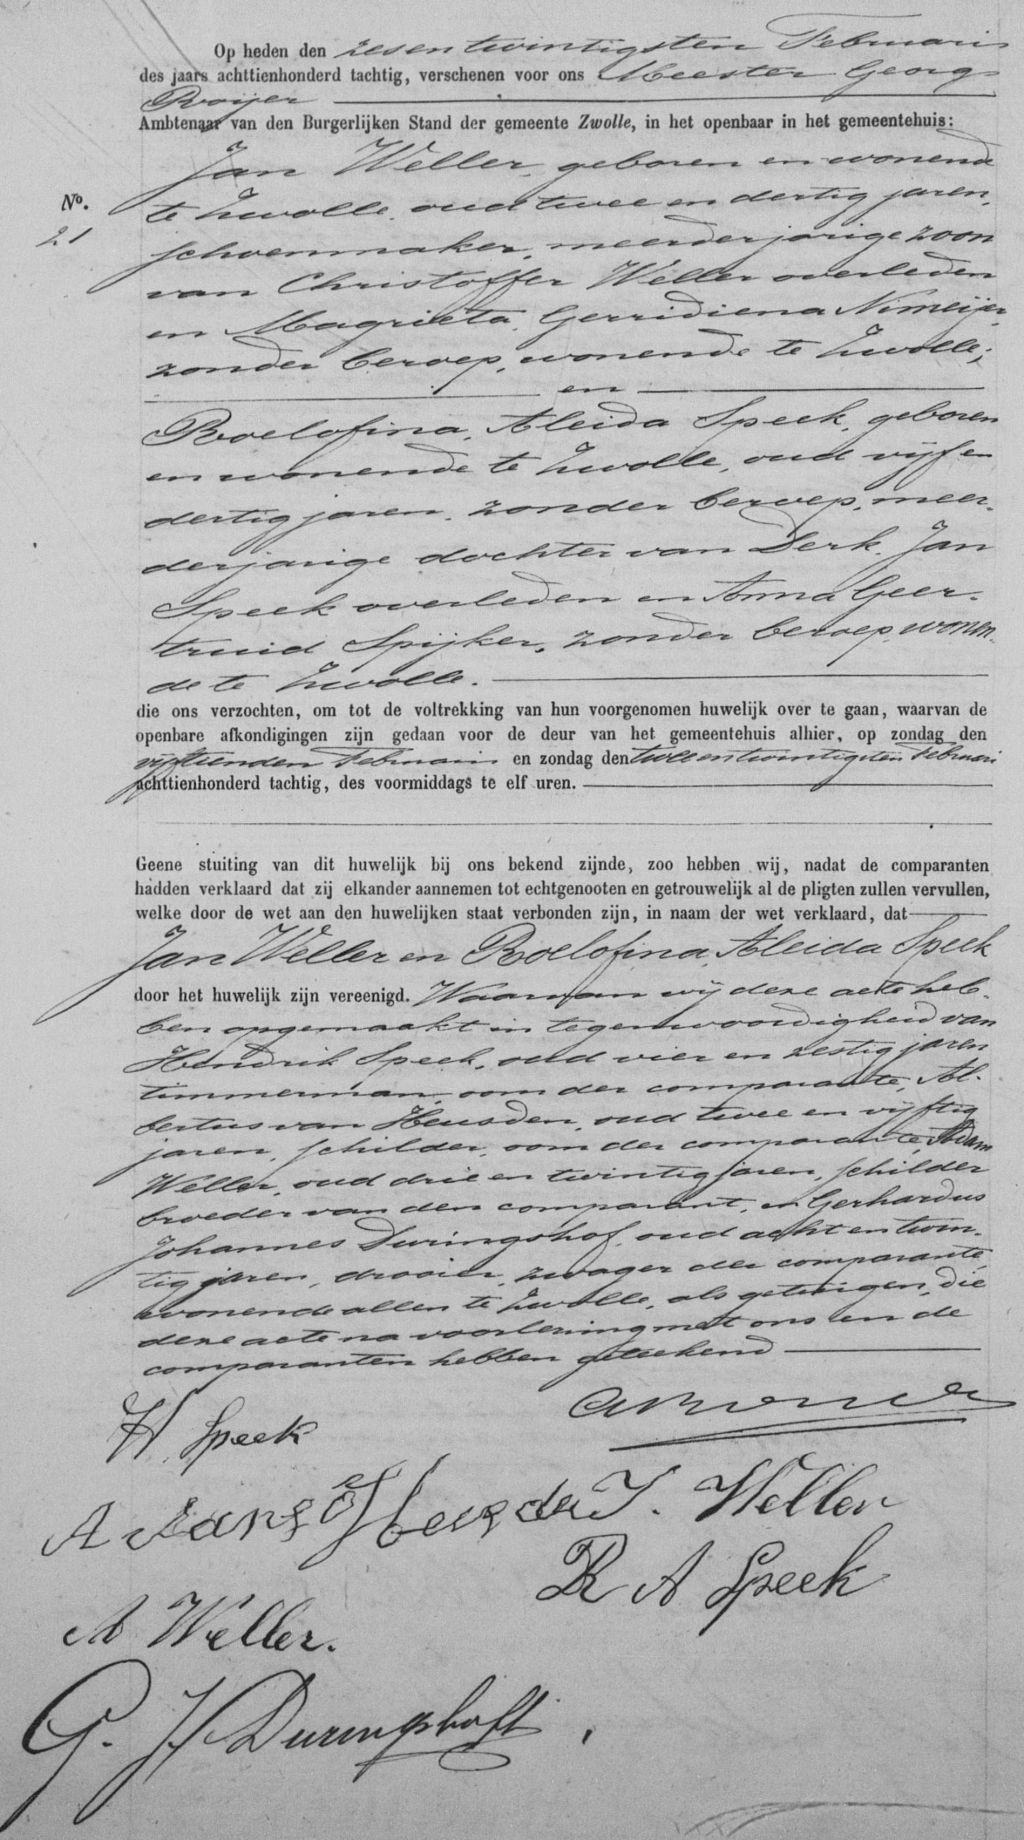 Op heden den zesentwintigsten Februari
des jaars achttienhonderd tachtig, verschenen voor ons Meester Georg
Roijer
Ambtenaar van den Burgerlijken Stand der gemeente Zwolle, in het openbaar in het gemeentehuis:
Jan Weller, geboren en wonend
te Zwolle, oud twee en dertig jaren,
No.
21
schoenmaker, meerderjarige zoon
van Christoffer Weller overleden
en Magrieta, Gerridiena Nimeijer,
zonder beroep, wonende te Zwolle;
en
Roelofina, Aleida Speek, geboren
en wonende te Zwolle, oud vijf en
dertig jaren, zonder beroep, meer-
derjarige dochter van Derk Jan
Speek overleden en Anna Geer-
truid Spijker, zonder beroep wonen-
de te Zwolle.
die ons verzochten, om tot de voltrekking van hun voorgenomen huwelijk over te gaan, waarvan de
openbare afkondigingen zijn gedaan voor de deur van het gemeentehuis alhier, op zondag den
vijftienden Februari en zondag den tweeentwintigsten Februari
achttienhonderd tachtig, des voormiddags te elf uren.
Geene stuiting van dit huwelijk bij ons bekend zijnde, zoo hebben wij, nadat de comparanten
hadden verklaard dat zij elkander aannemen tot echtgenooten en getrouwelijk al de pligten zullen vervullen,
welke door de wet aan den huwelijken staat verbonden zijn, in naam der wet verklaard, dat
Jan Weller en Roelofina, Aleida Speek
door het huwelijk zijn vereenigd. Waarvan wij deze acte heb-
ben opgemaakt in tegenwoordigheid van
Hendrik Speek, oud vier en zestig jaren
timmerman, oom der comparante, Al-
bertus van Heusden, oud twee en vijftig
jaren, schilder, oom der comparante, Adam
Weller, oud drie en twintig jaren, schilder
broeder van den comparant, en Gerhardus
Johannes Duringshof, oud acht en twin-
tig jaren, draaier, zwager der comparante,
wonende allen te Zwolle, als getuigen, die
deze acte na voorlezing met ons en de
comparanten hebben geteekend
H. Speek
J. Weller
R A Speek
A Weller.
G. J. Duringshoff.